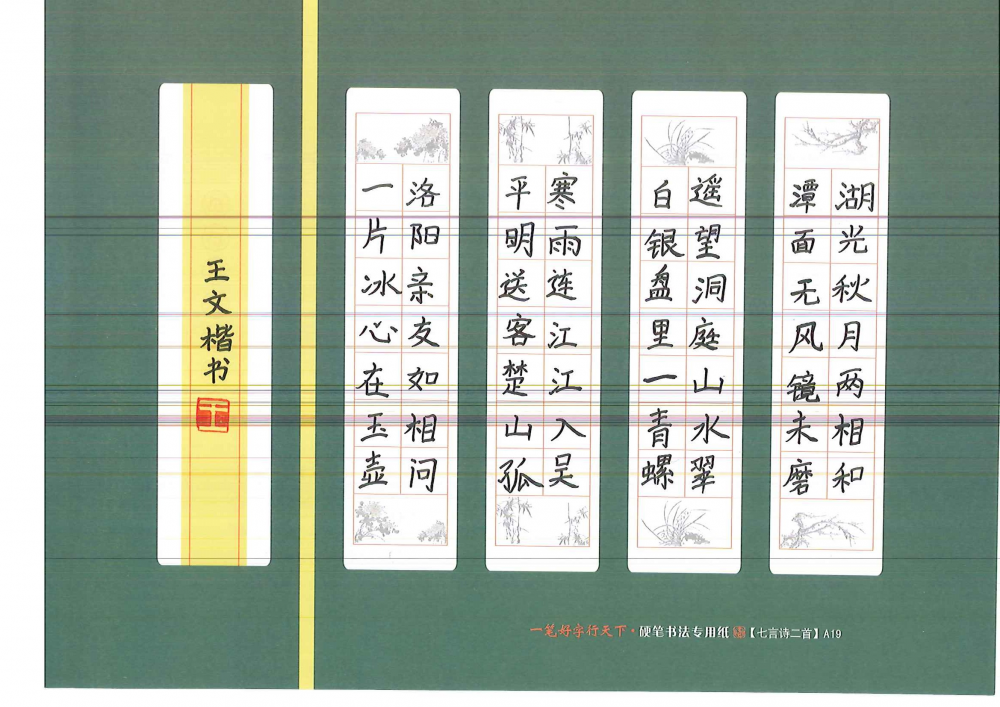 湖光秋月两相和
潭面无风镜未磨
遥望洞庭山水翠
白银盘里一青螺
寒雨连江江入吴
平明送客楚山孤
洛阳亲友如相问
一片冰心在玉壶
王文楷书
一笔好字行天下·硬笔书法专用纸【七言诗二首】A19